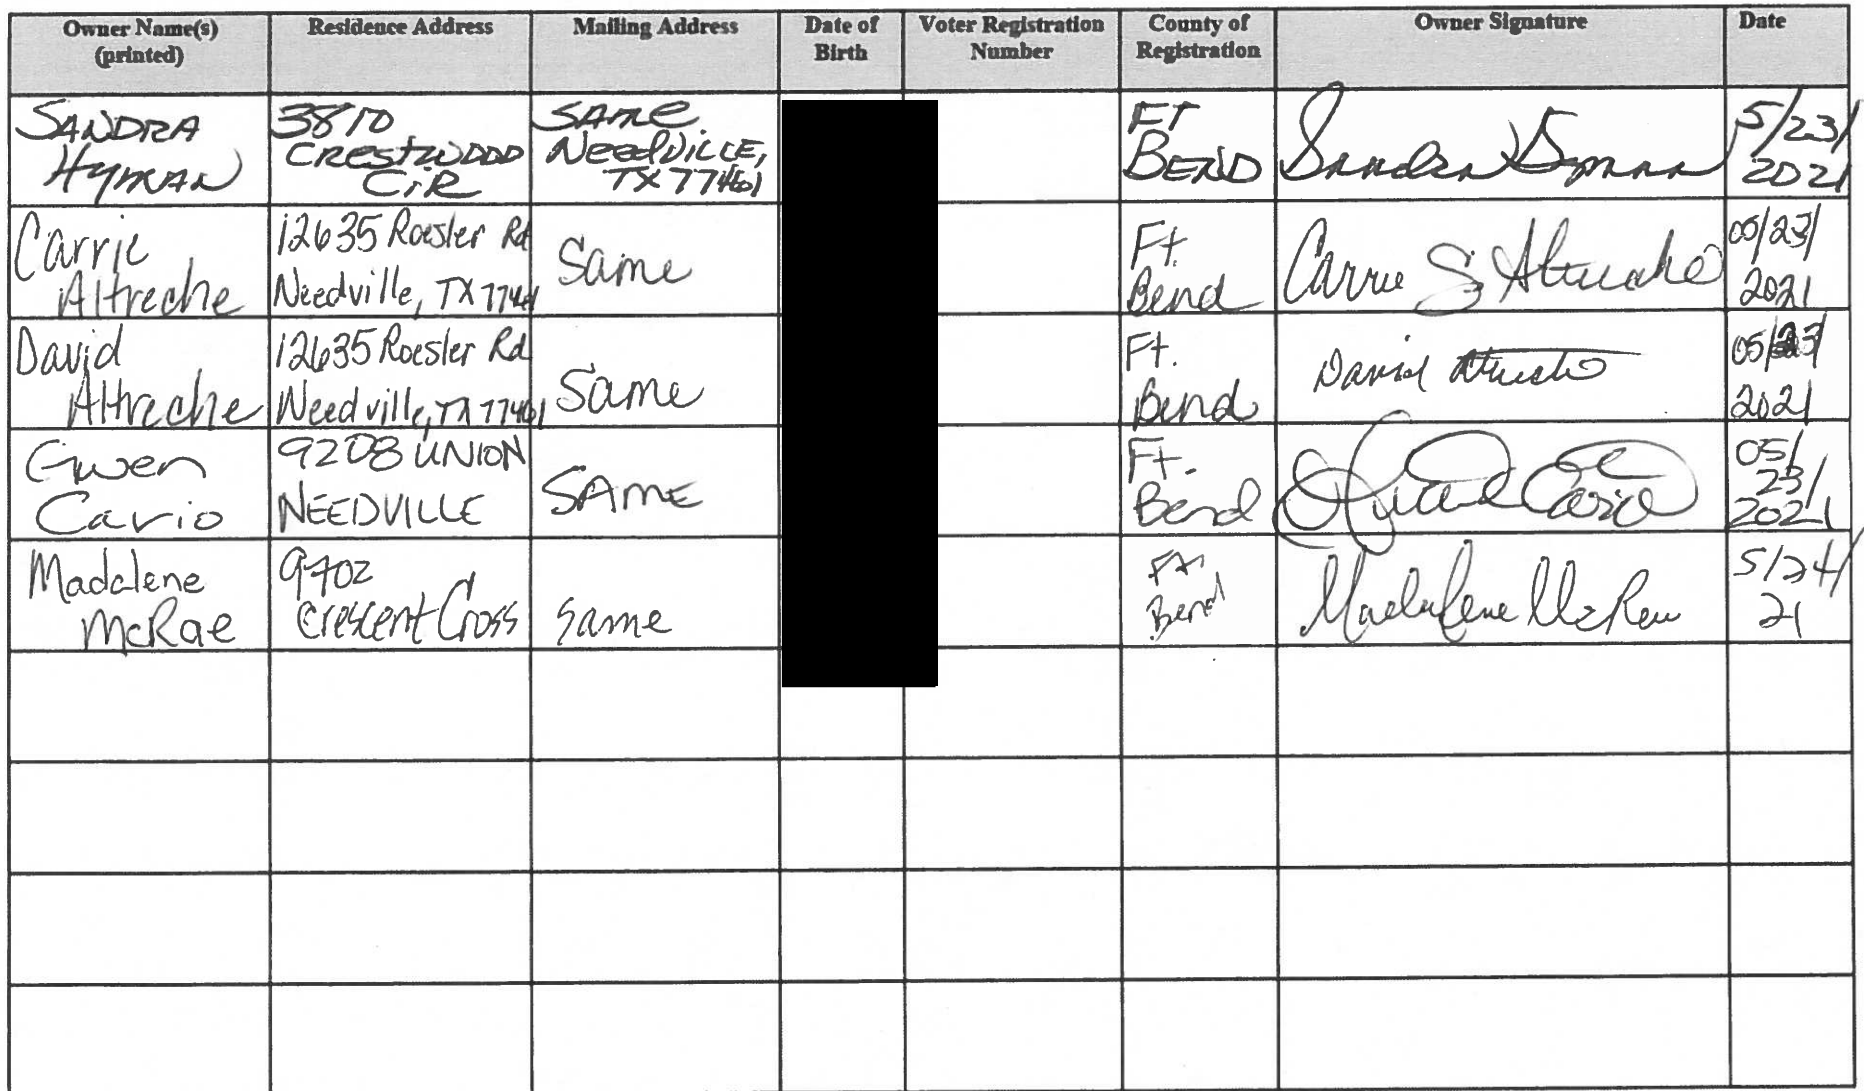 Owner Name(s) (printed) Residence Address Mailing Address Date of Birth Voter Registration Number County of Registration Owner Signature Date
SANDRA HYMAN 3810 CRESTWOOD CIR SAME NEEDVILLE, TX 77461 FT BEND Sandra Hyman 5/23/2021
Carrie Altreche 12635 Roesler Rd Needville, TX 77461 Same Ft. Bend Carrie S Altreche 05/23/2021
David Altreche 12635 Roesler Rd Needville, TX 77461 Same Ft. Bend David Altreche 05/23/2021
Gwen Cavio 9208 UNION NEEDVILLE SAME Ft. Bend 05/23/2021
Madalene McRae 9702 Crescent Cross Same Ft Bend Madalene McRae 5/24/21